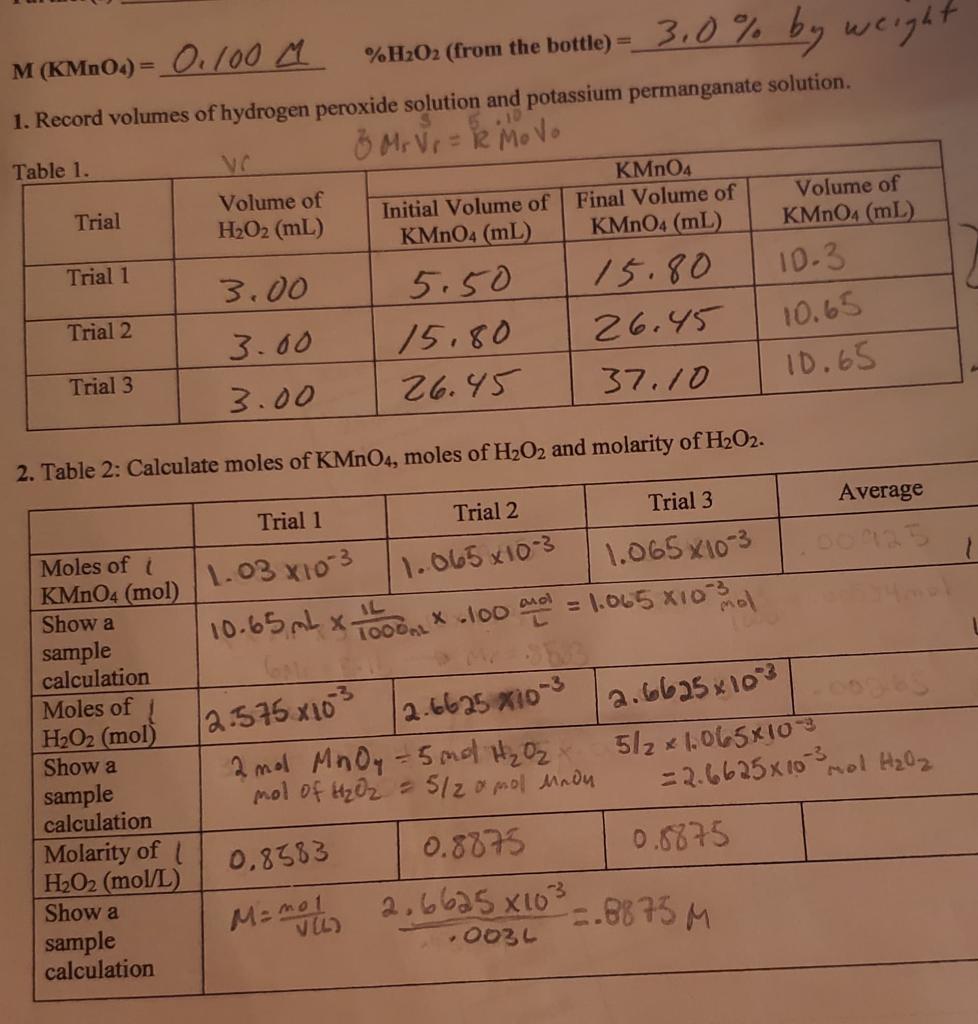 M (KMnO₄) = 0.100 M %H₂O₂ (from the bottle) = 3.0 % by weight
1. Record volumes of hydrogen peroxide solution and potassium permanganate solution.
MrVr = MoVo
Table 1.
Vr
KMnO₄
Trial Volume of H₂O₂ (mL) Initial Volume of KMnO₄ (mL) Final Volume of KMnO₄ (mL) Volume of KMnO₄ (mL)
Trial 1 3.00 5.50 15.80 10.3
Trial 2 3.00 15.80 26.45 10.65
Trial 3 3.00 26.45 37.10 10.65
2. Table 2: Calculate moles of KMnO₄, moles of H₂O₂ and molarity of H₂O₂.
Trial 1 Trial 2 Trial 3 Average
Moles of KMnO₄ (mol) 1.03 x10⁻³ 1.065 x10⁻³ 1.065 x10⁻³
Show a sample calculation 10.65 mL x 1L/1000mL x .100 mol/L = 1.065 x10⁻³ mol
Moles of H₂O₂ (mol) 2.575 x10⁻³ 2.6625 x10⁻³ 2.6625 x 10⁻³
Show a sample calculation 2 mol MnO₄ = 5 mol H₂O₂ 5/2 x 1.065x10⁻³
mol of H₂O₂ = 5/2 mol MnO₄ = 2.6625x10⁻³ mol H₂O₂
Molarity of H₂O₂ (mol/L) 0.8583 0.8875 0.8875
Show a sample calculation M = mol/V(L) 2.6625 x10⁻³/.003L = .8875 M